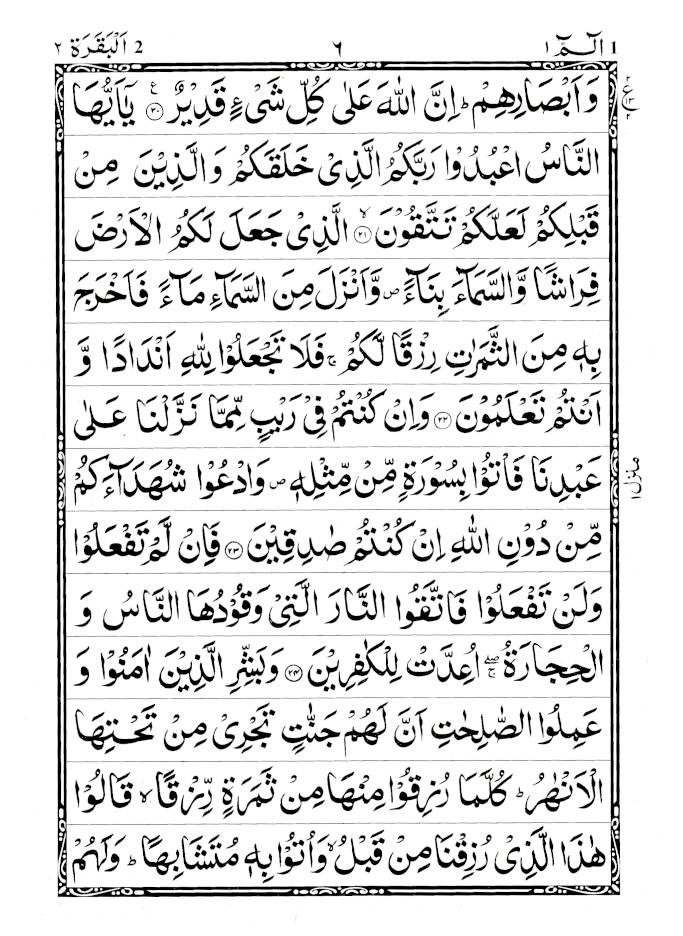 1 الٓمّٓ ۱ ٦ 2 اَلْبَقَرَة ٢
وَاَبْصَارِهِمْ ؕ اِنَّ اللّٰهَ عَلٰى كُلِّ شَىْءٍ قَدِيْرٌ ۝۲۰ ع يٰۤاَيُّهَا
ع
النَّاسُ اعْبُدُوْا رَبَّكُمُ الَّذِىْ خَلَقَكُمْ وَالَّذِيْنَ مِنْ
قَبْلِكُمْ لَعَلَّكُمْ تَتَّقُوْنَ ۝۲۱ ۙ الَّذِىْ جَعَلَ لَكُمُ الْاَرْضَ
فِرَاشًا وَّالسَّمَآءَ بِنَآءً ص وَّاَنْزَلَ مِنَ السَّمَآءِ مَآءً فَاَخْرَجَ
بِهٖ مِنَ الثَّمَرٰتِ رِزْقًا لَّكُمْ ۚ فَلَا تَجْعَلُوْا لِلّٰهِ اَنْدَادًا وَّ
اَنْتُمْ تَعْلَمُوْنَ ۝۲۲ وَاِنْ كُنْتُمْ فِىْ رَيْبٍ مِّمَّا نَزَّلْنَا عَلٰى
عَبْدِنَا فَاْتُوْا بِسُوْرَةٍ مِّنْ مِّثْلِهٖ ص وَادْعُوْا شُهَدَآءَكُمْ
منزل ۱
مِّنْ دُوْنِ اللّٰهِ اِنْ كُنْتُمْ صٰدِقِيْنَ ۝۲۳ فَاِنْ لَّمْ تَفْعَلُوْا
وَلَنْ تَفْعَلُوْا فَاتَّقُوا النَّارَ الَّتِىْ وَقُوْدُهَا النَّاسُ وَ
الْحِجَارَةُ ۖۚ اُعِدَّتْ لِلْكٰفِرِيْنَ ۝۲۴ وَبَشِّرِ الَّذِيْنَ اٰمَنُوْا وَ
عَمِلُوا الصّٰلِحٰتِ اَنَّ لَهُمْ جَنّٰتٍ تَجْرِىْ مِنْ تَحْتِهَا
الْاَنْهٰرُ ؕ كُلَّمَا رُزِقُوْا مِنْهَا مِنْ ثَمَرَةٍ رِّزْقًا ۙ قَالُوْا
هٰذَا الَّذِىْ رُزِقْنَا مِنْ قَبْلُ ۙ وَاُتُوْا بِهٖ مُتَشَابِهًا ؕ وَلَهُمْ